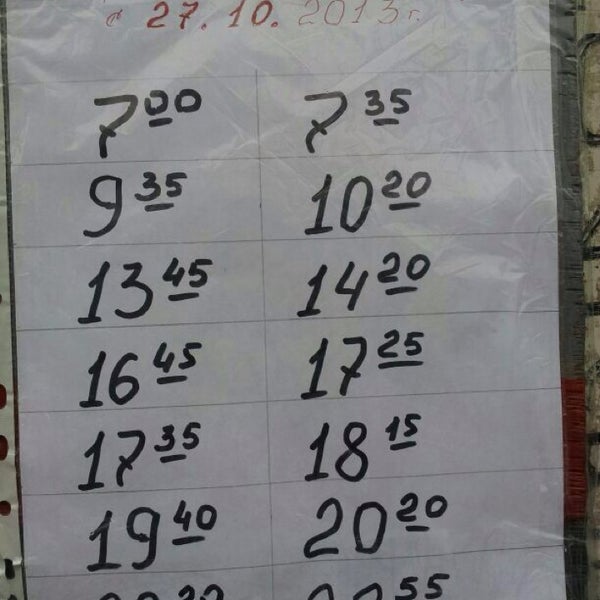 с 27.10.2013г.
7 00 7 35
9 35 10 20
13 45 14 20
16 45 17 25
17 35 18 15
19 40 20 20
55